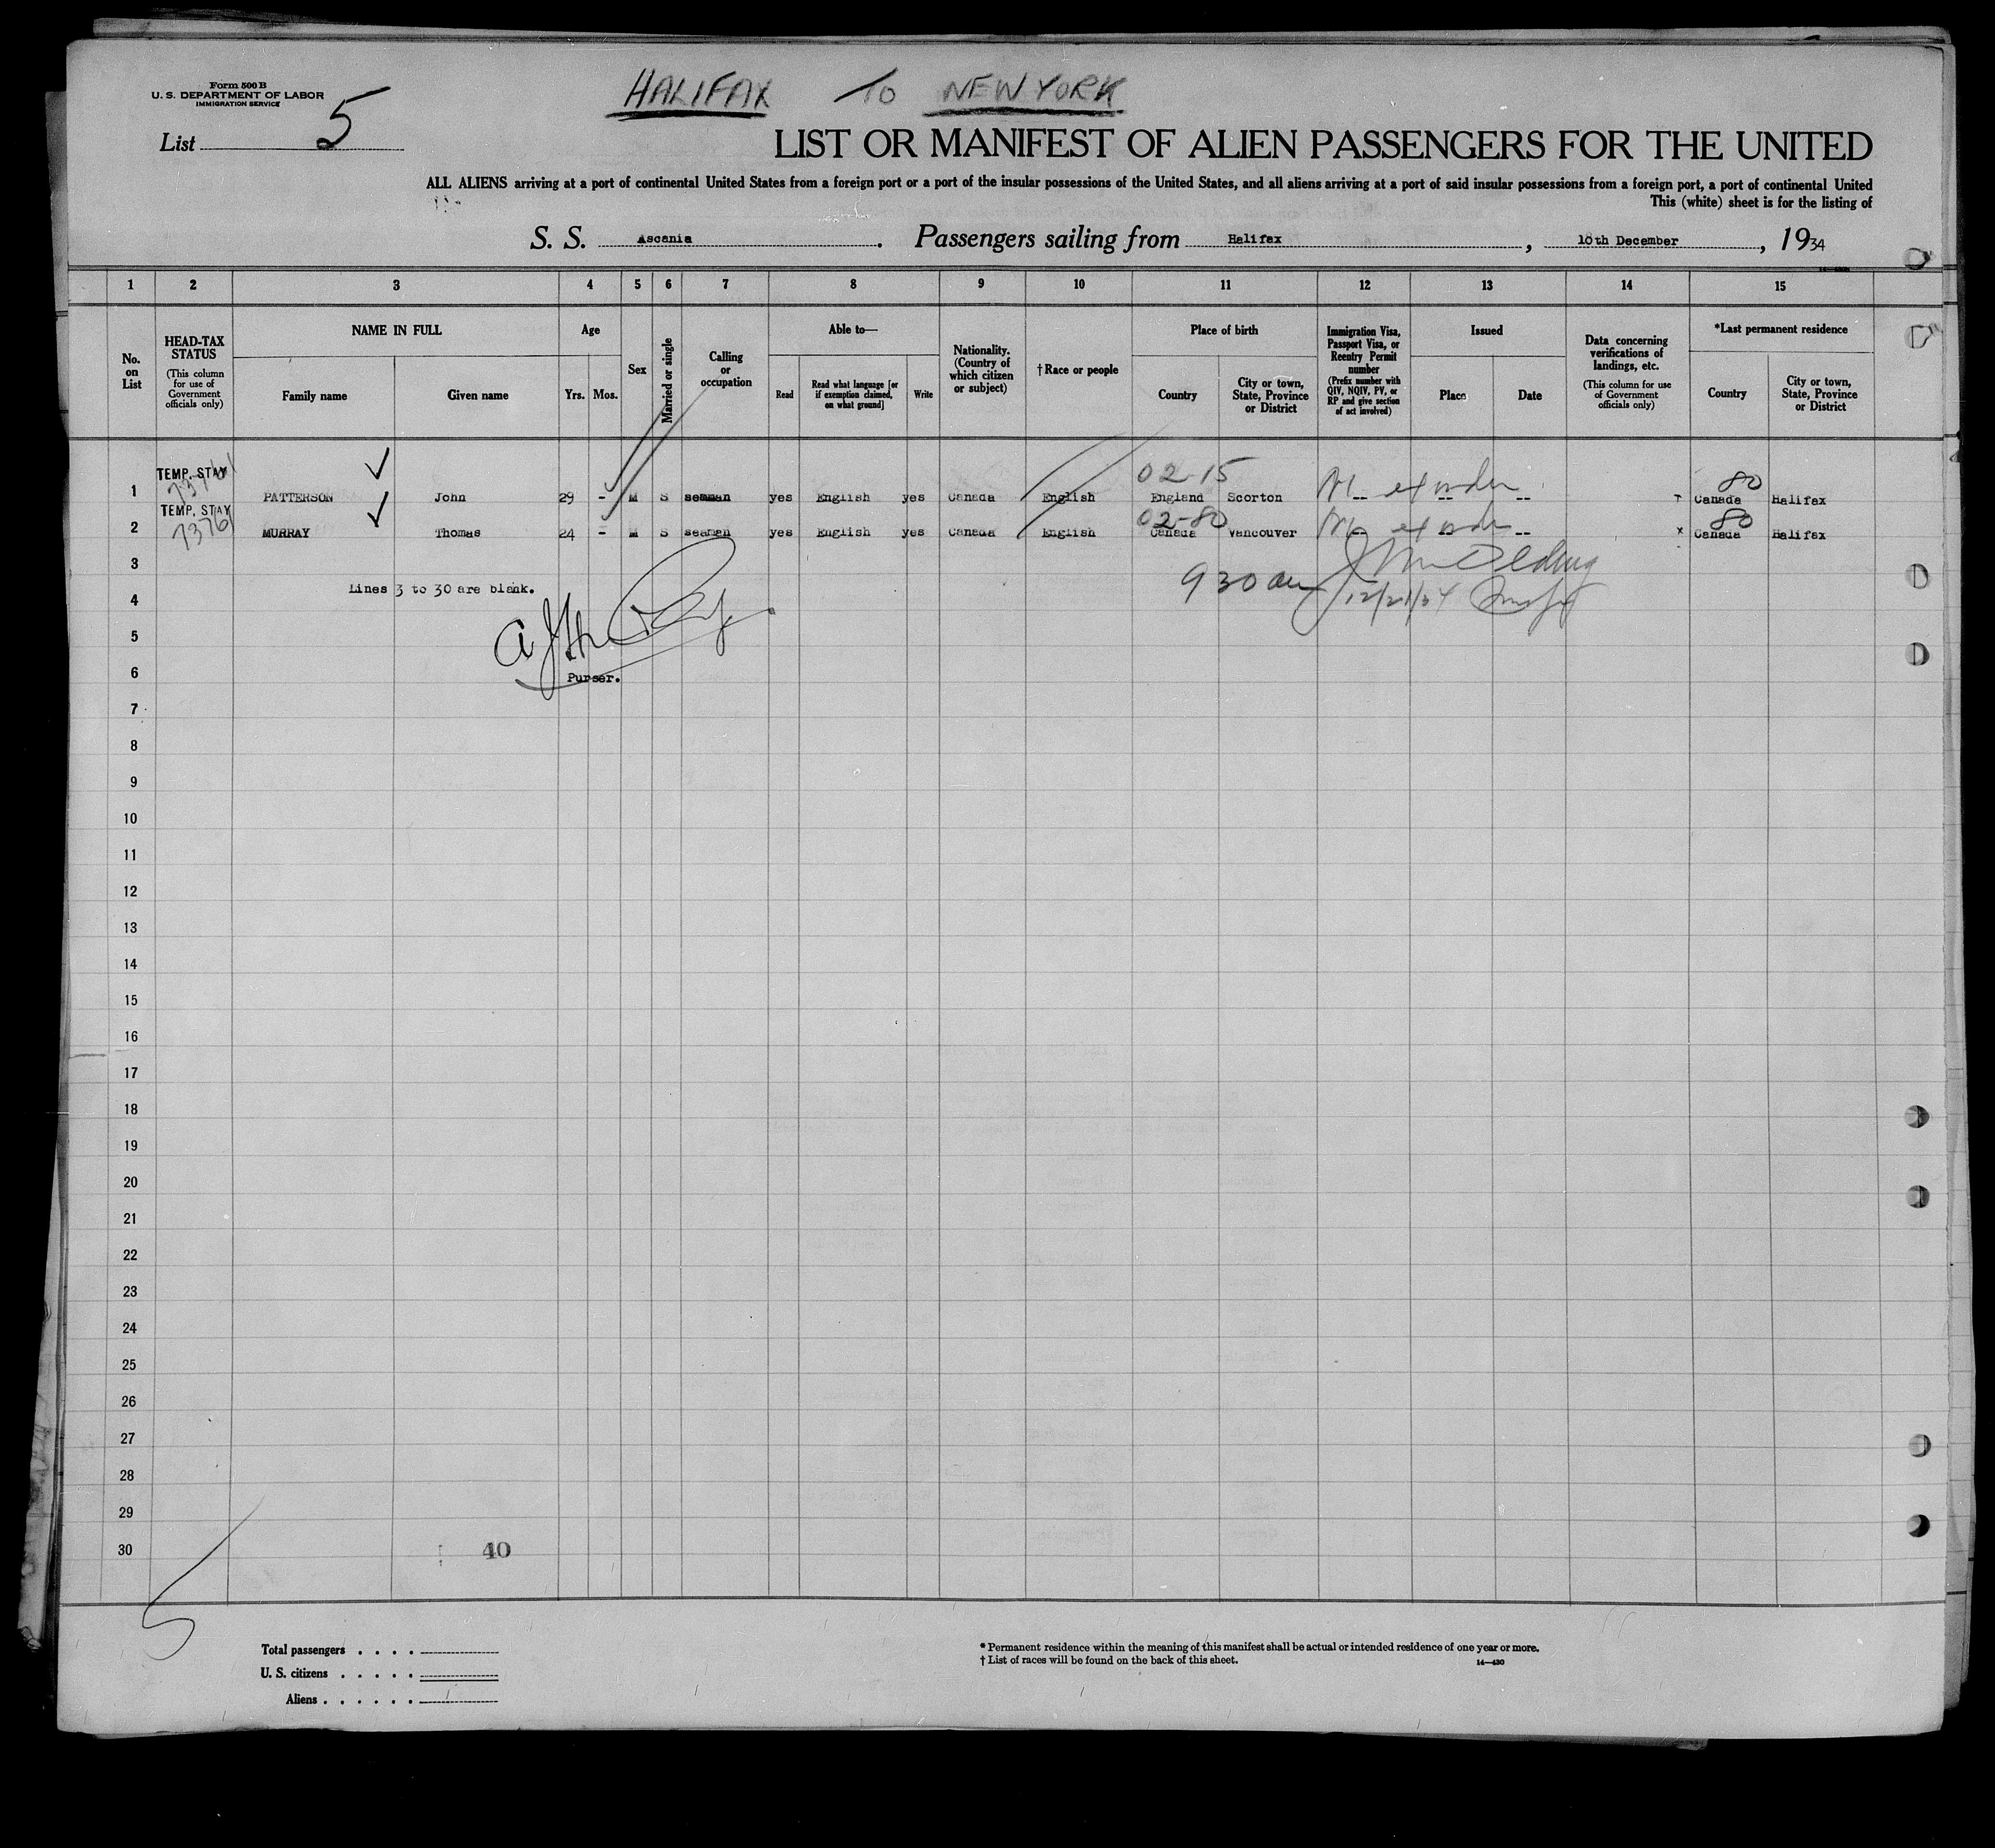 Form 500 B
U. S. DEPARTMENT OF LABOR
IMMIGRATION SERVICE
HALIFAX TO NEW YORK
List 5
LIST OR MANIFEST OF ALIEN PASSENGERS FOR THE UNITED
ALL ALIENS arriving at a port of continental United States from a foreign port or a port of the insular possessions of the United States, and all aliens arriving at a port of said insular possessions from a foreign port, a port of continental United
This (white) sheet is for the listing of
S. S. Ascania. Passengers sailing from Halifax, 10th December, 1934
1 2 3 4 5 6 7 8 9 10 11 12 13 14 15
No. on List
HEAD-TAX STATUS
(This column for use of Government officials only)
NAME IN FULL
Family name
Given name
Age
Yrs. Mos.
Sex
Married or single
Calling or occupation
Able to—
Read
Read what language [or if exemption claimed, on what ground]
Write
Nationality. (Country of which citizen or subject)
†Race or people
Place of birth
Country
City or town, State, Province or District
Immigration Visa, Passport Visa, or Reentry Permit number
(Prefix number with QIV, NQIV, PV, or RP and give section of act involved)
Issued
Place
Date
Data concerning verifications of landings, etc.
(This column for use of Government officials only)
*Last permanent residence
Country
City or town, State, Province or District
TEMP. STAY 02-15 80
1 PATTERSON John 29 - M S seaman yes English yes Canada English England Scorton Canada Halifax
TEMP. STAY 73761 02-80 80
2 MURRAY Thomas 24 - M S seaman yes English yes Canada English Canada Vancouver x Canada Halifax
3
Lines 3 to 30 are blank.
9 30 am 12/21/34
4
5
6
Purser.
7
8
9
10
11
12
13
14
15
16
17
18
19
20
21
22
23
24
25
26
27
28
29
30 40
5
Total passengers . . . .
U. S. citizens . . . . .
Aliens . . . . . .
* Permanent residence within the meaning of this manifest shall be actual or intended residence of one year or more.
† List of races will be found on the back of this sheet.
14—430